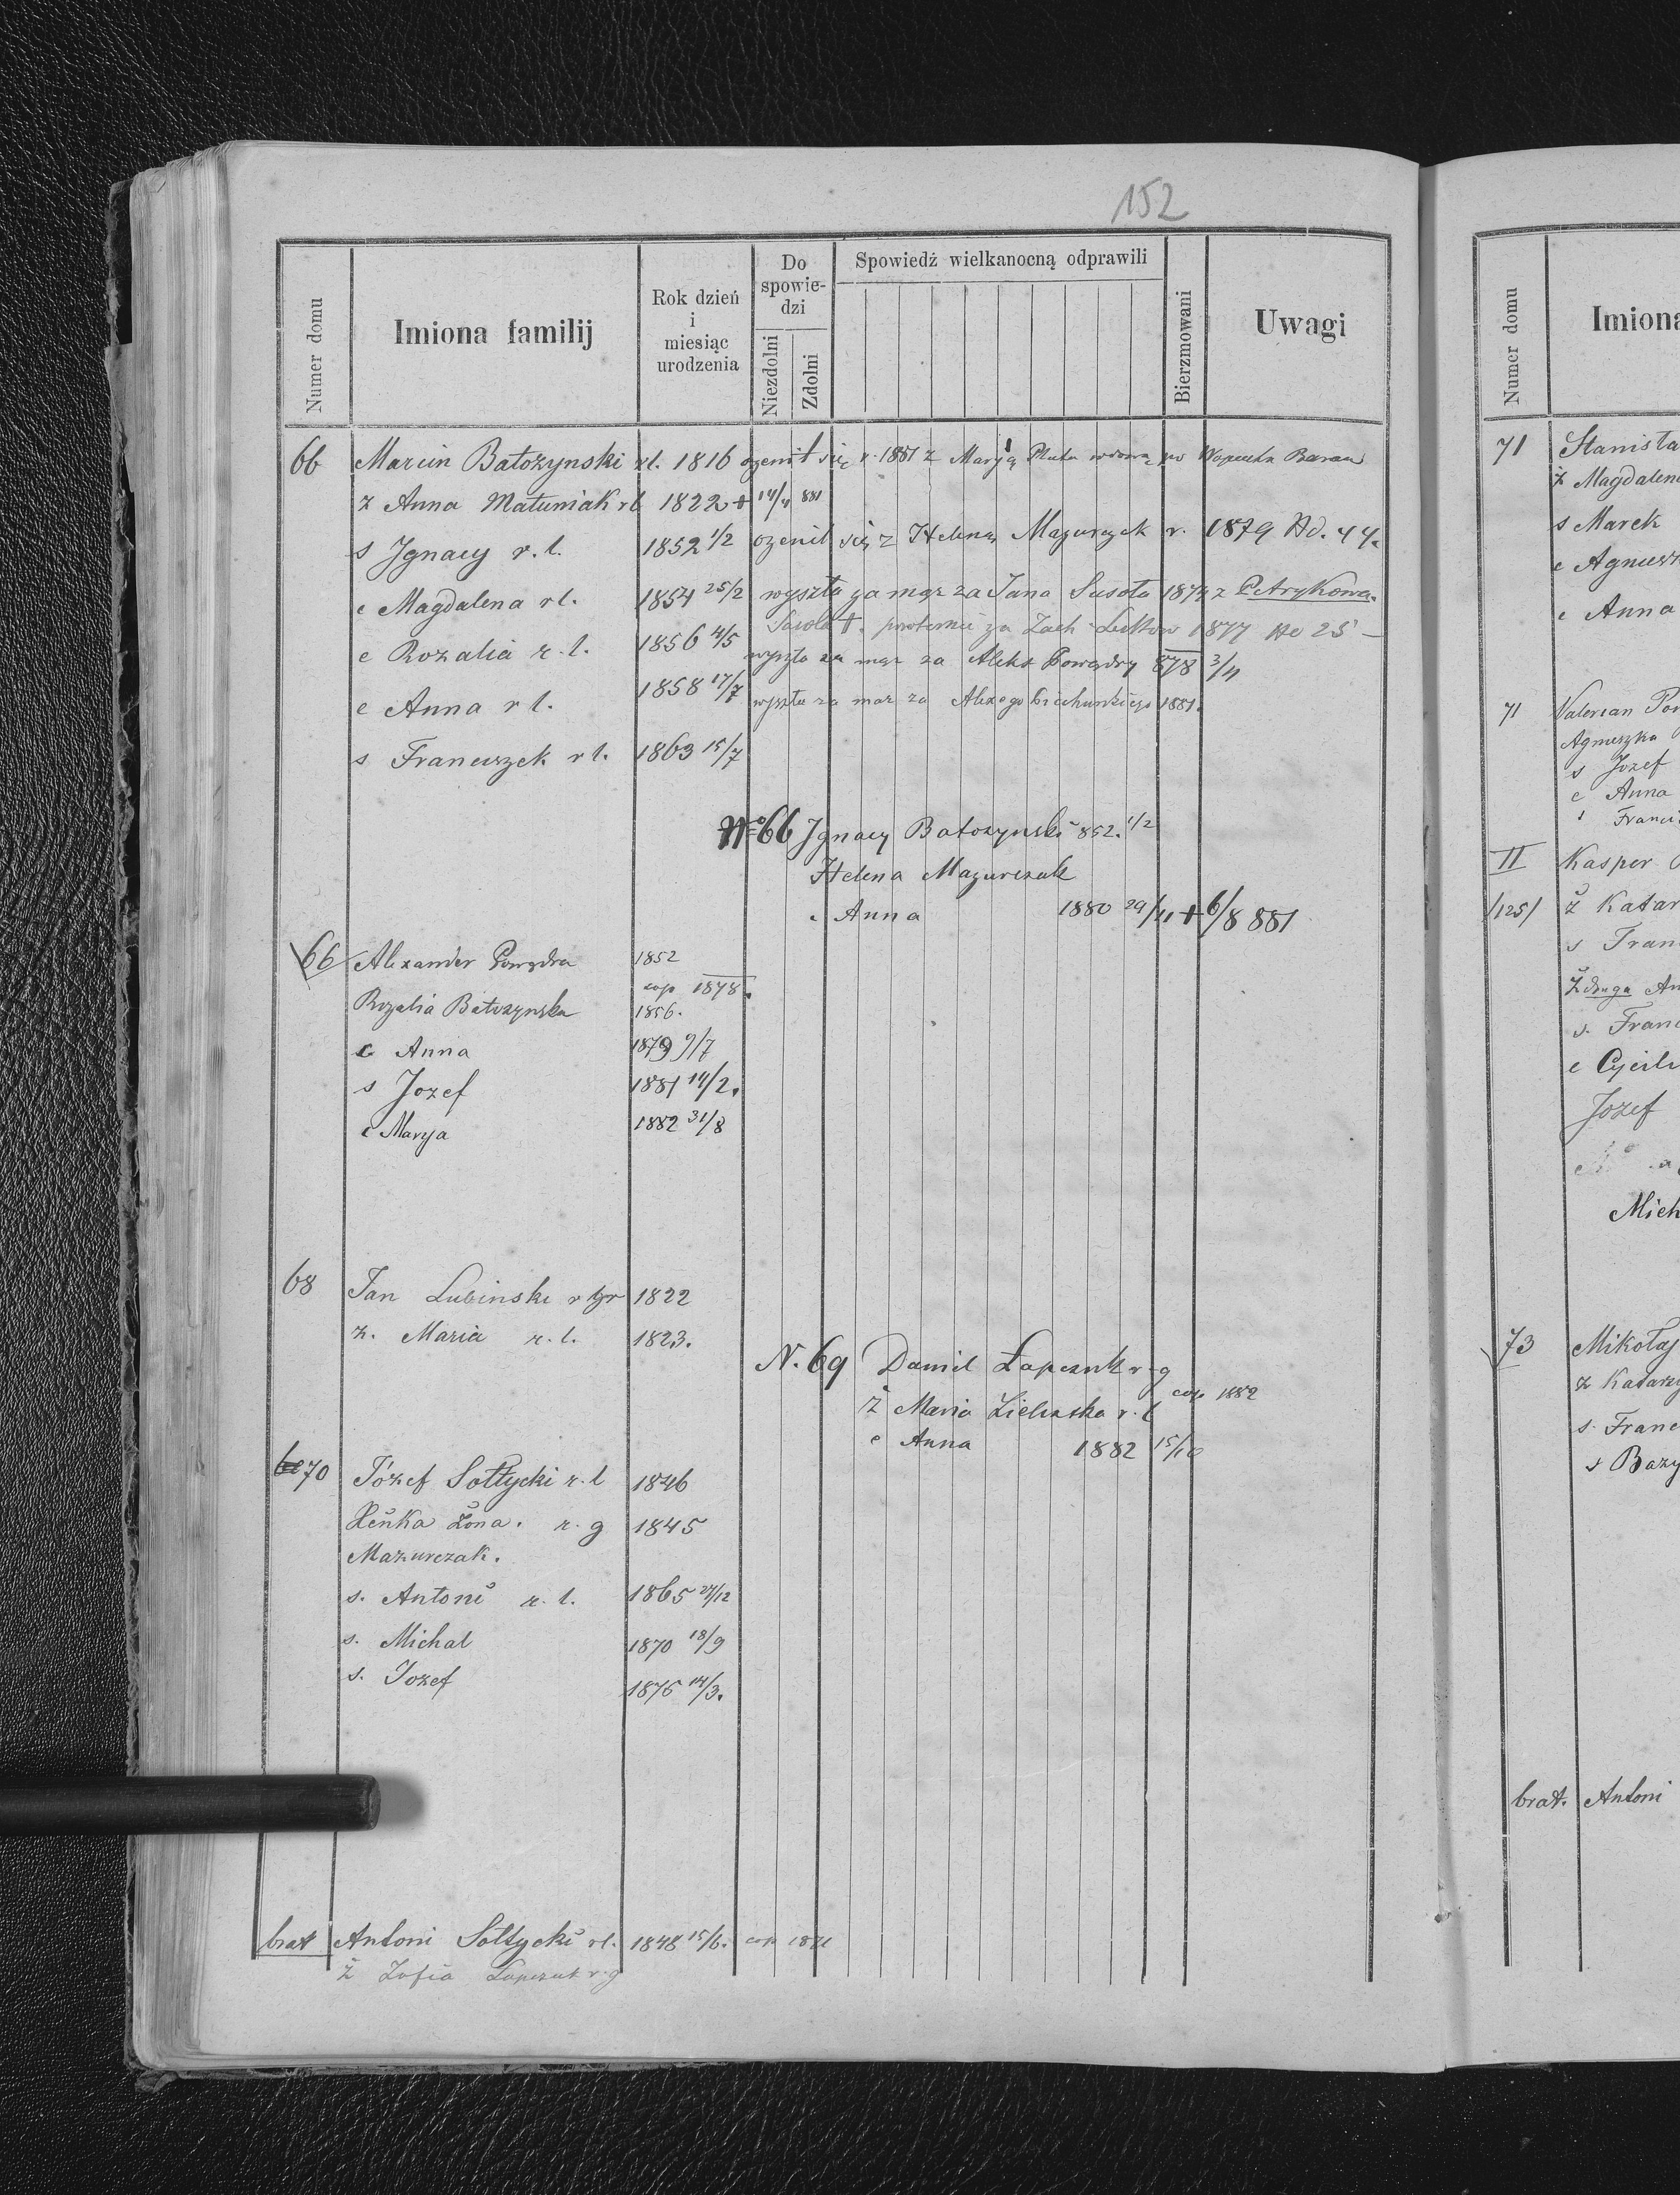 152
Numer domu
Imiona familij
Rok dzień
i
miesiąc
urodzenia
Do
spowie-
dzi
Niezdolni
Zdolni
Spowiedź wielkanocną odprawili
Bierzmowani
Uwagi
66 Marcin Batożynski rl. 1816 ożenił się r. 1881 z Maryą Pluta wdową po Baran
ż Anna Matuniak rl 1822 + 14/4 881
s Ignacy r. l. 1852 1/2 ozenil się z Heleną Mazurczyk r. 1879 No. 44.
c Magdalena rl. 1854 25/2 wyszła za mąż za Jana Susoła 1874 z Petrykowa.
powternie za Zach 1877 No 25 -
c Rozalia r. l. 1856 4/5 wyszła za mąż za Aleks Powądry 878 3/11
c Anna r l. 1858 17/7 wyszła za maż za 1881.
s Franciszek r l. 1863 15/7
No 66 Ignacy Batożynski 852. 1/2
Helena Mazurczak
c. Anna 1880 29/11 + 6/8 881
66 Alexander Powądra 1852
cop 1878.
Rozalia Batożynska 1856.
c Anna 1879 9/7
s Jozef 1881 14/2.
c Marya 1882 31/8
68 Jan Lubinski r gr 1822
ż. Maria r. l. 1823.
N. 69 Daniel Łapczuk r-g
ż Maria Zielinska r. l cop 1882
c Anna 1882 15/10
70 Józef Sołtycki r. l 1846
Heńka żona. r. g 1845
Mazurczak.
s. Antoni r. l. 1865 27/12
s. Michał 1870 18/9
s. Jozef 1876 14/3.
brat Antoni Sołtycki rl. 1848 15/6. cop 1871
ż Zofia Łapczuk r-g
Numer domu
Imiona
71 Stanisła
ż Magdalena
s Marek
c Agniesz
c Anna
71 Valerian Pow
Agnieszka
s Jozef
c Anna
s Franci
II Kasper
/125/ ż Katar
s Fran
ż druga An
s. Fran
c Cecil
Jozef
Mich
73 Mikołaj
ż Katarz
s. Franc
s Bazy
brat. Antoni